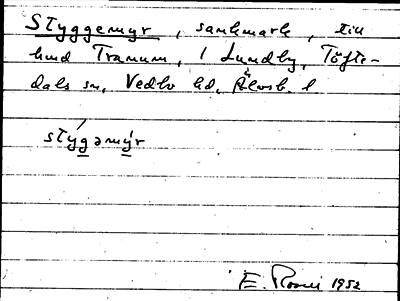 Styggemyr, sankmark, till
hmd Tranum, 1 Lundby, Töfte-
dals sn, Vedbo hd, Älvsb. l
stýgəmýr
E. Rooni 1952